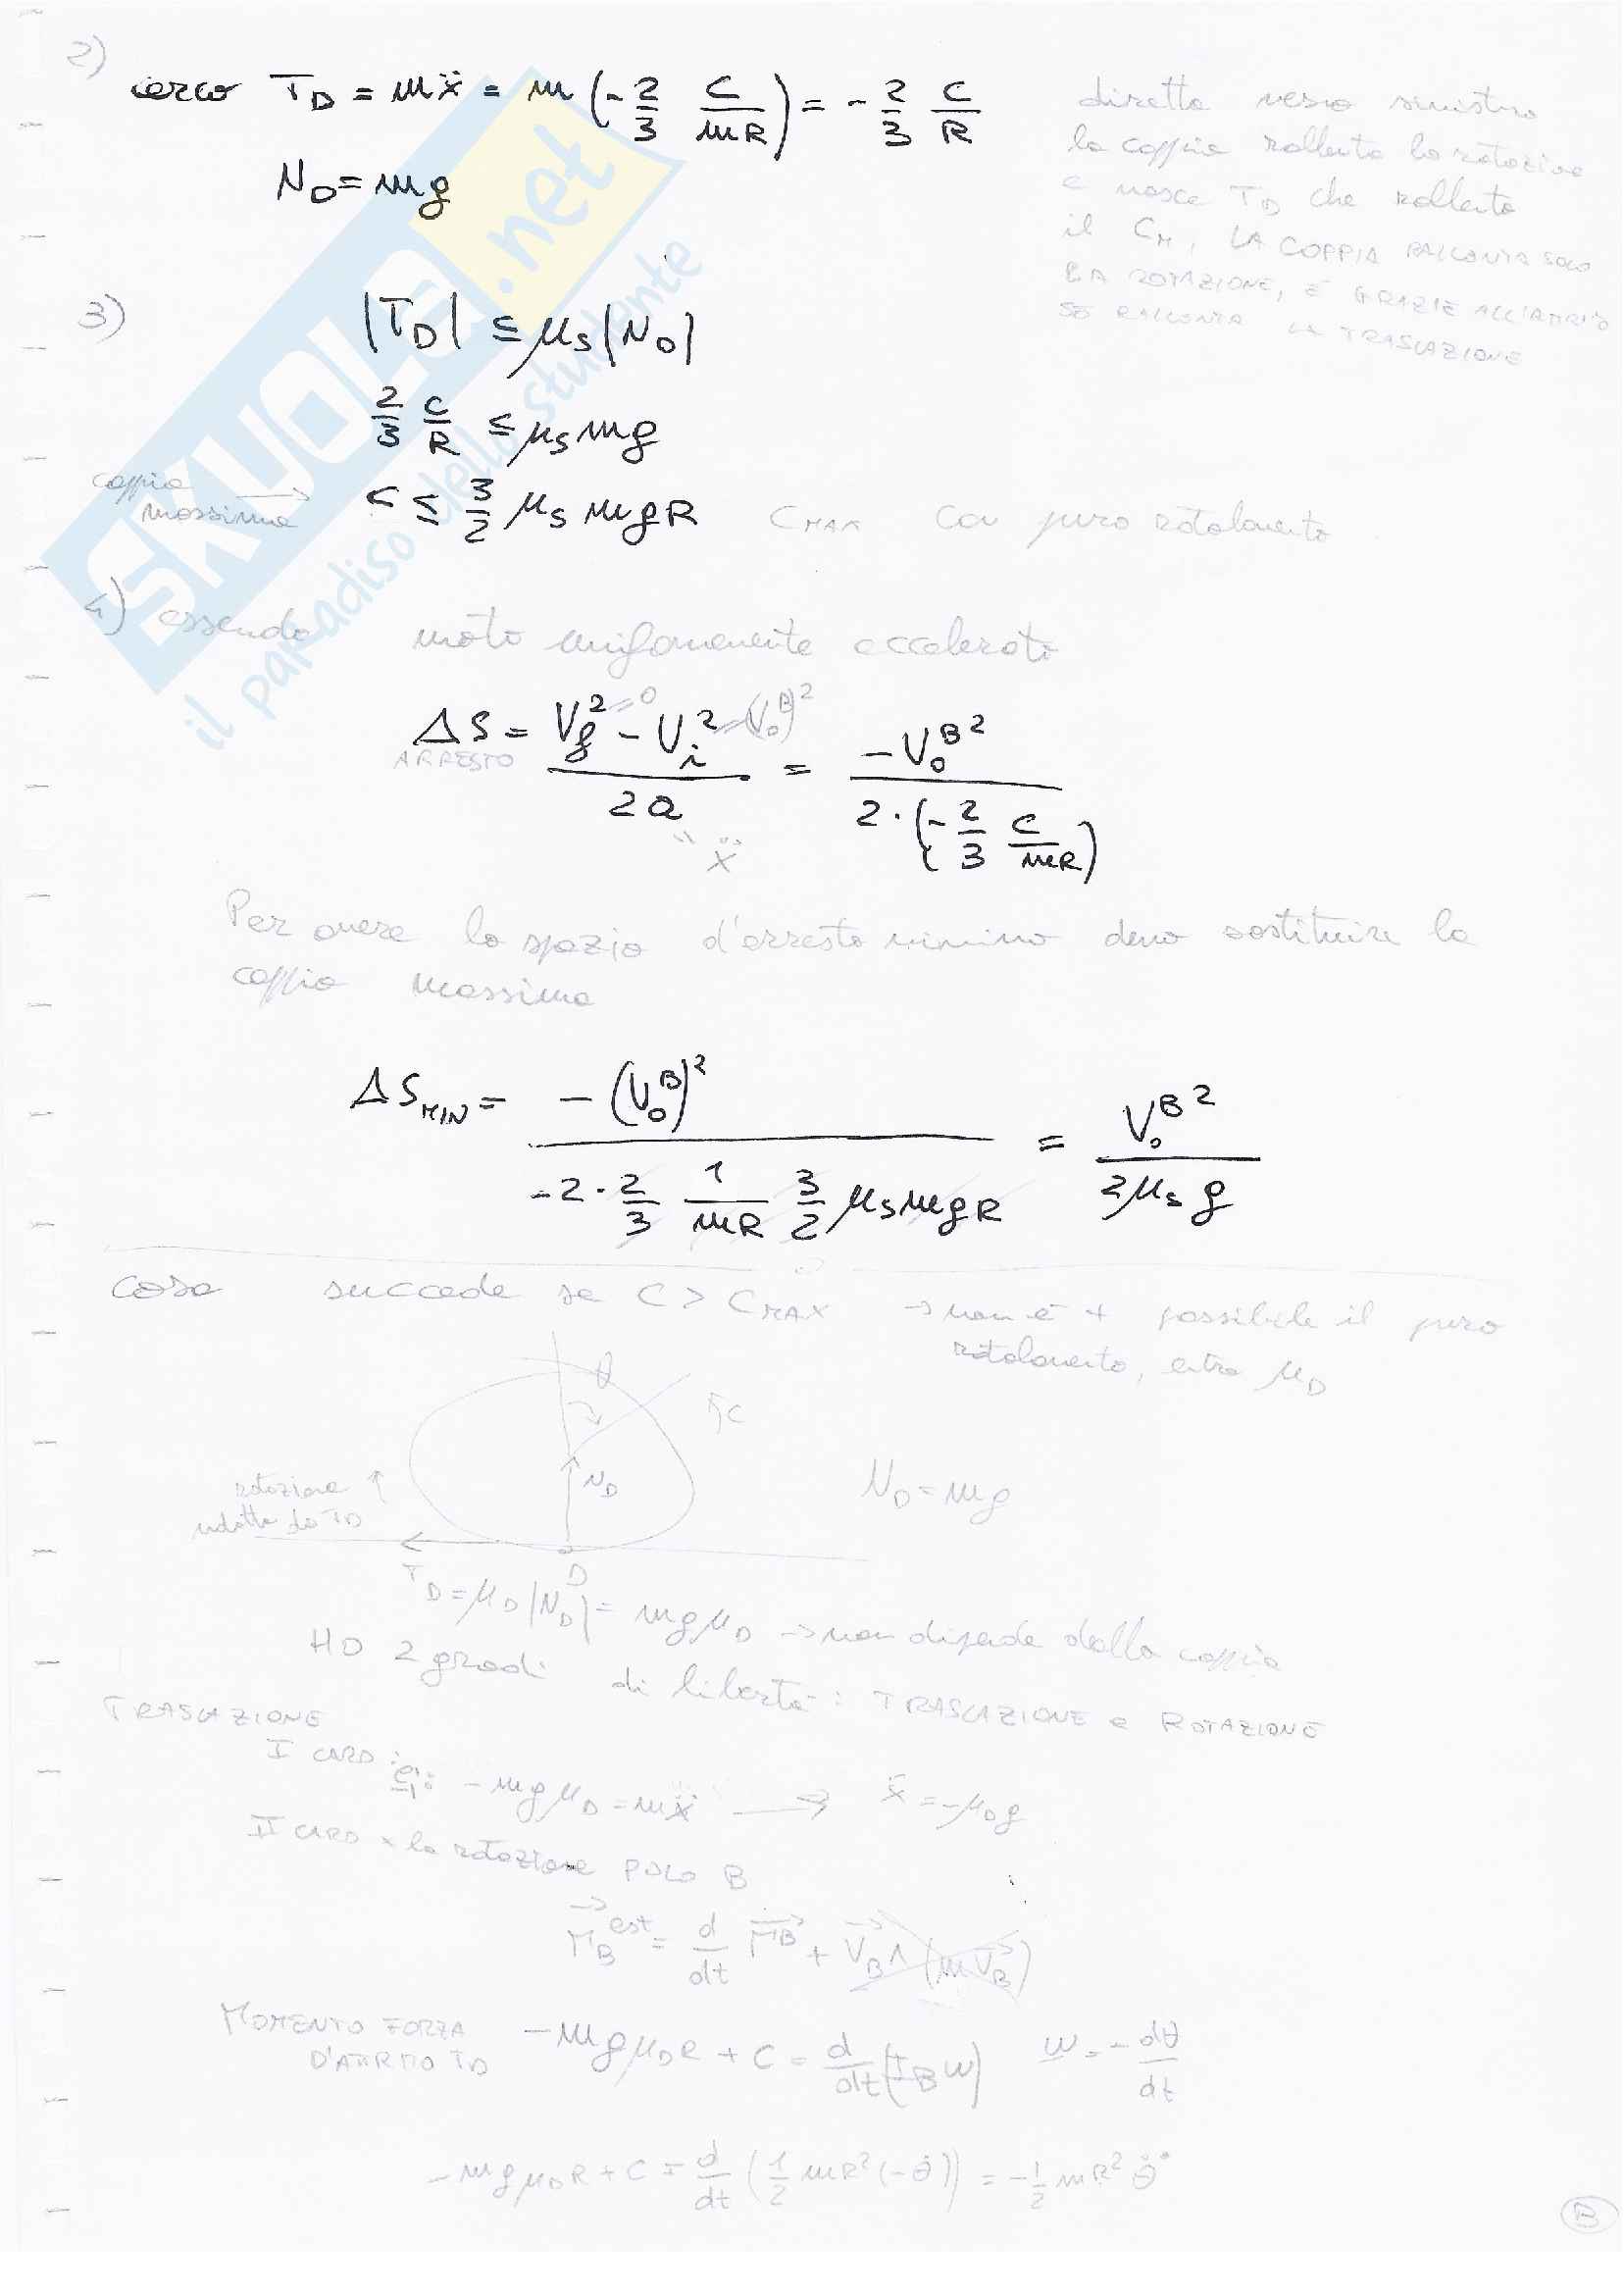 2)
cerco T_D = mẍ = m (-2/3 C/mR) = -2/3 C/R
diretta verso sinistra
la coppia rallenta la rotazione
e nasce T_D che rallenta
il C_M, LA COPPIA RALLENTA SOLO
LA ROTAZIONE, È GRAZIE ALL'ATTRITO
SE RALLENTA LA TRASLAZIONE
N_D = mg
3)
|T_D| ≤ μ_S |N_D|
2/3 C/R ≤ μ_S mg
coppia
massima → C ≤ 3/2 μ_S mgR C_MAX con puro rotolamento
4) essendo moto uniformemente accelerato
ΔS = (V_f² - V_i²)/2a = -V_0^B²/(2·(-2/3 C/mR))
=0 =(V_0^B)²
ARRESTO
" ẍ
Per avere lo spazio d'arresto minimo devo sostituire la
coppia massima
ΔS_MIN = -(V_0^B)²/(-2·2/3 1/mR 3/2 μ_S mgR) = V_0^B²/(2μ_S g)
cosa succede se C > C_MAX → non è + possibile il puro
rotolamento, entra μ_D
θ
C
N_D
N_D = mg
rotazione
indotta da T_D
D
T_D = μ_D |N_D| = mgμ_D → non dipende dalla coppia
HO 2 gradi di libertà: TRASLAZIONE e ROTAZIONE
TRASLAZIONE
I CARD: e_1: -mgμ_D = mẍ → ẍ = -μ_D g
II CARD x la rotazione POLO B
M_B^est = d/dt M_B + V_B ∧ (mV_B)
MOMENTO FORZA
D'ATTRITO T_D
-mgμ_D R + C = d/dt (I_B ω) ω = -dθ/dt
-mgμ_D R + C = d/dt (1/2 mR² (-θ̇)) = -1/2 mR² θ̈
B
SKUOLA.net
il paradiso dello studente